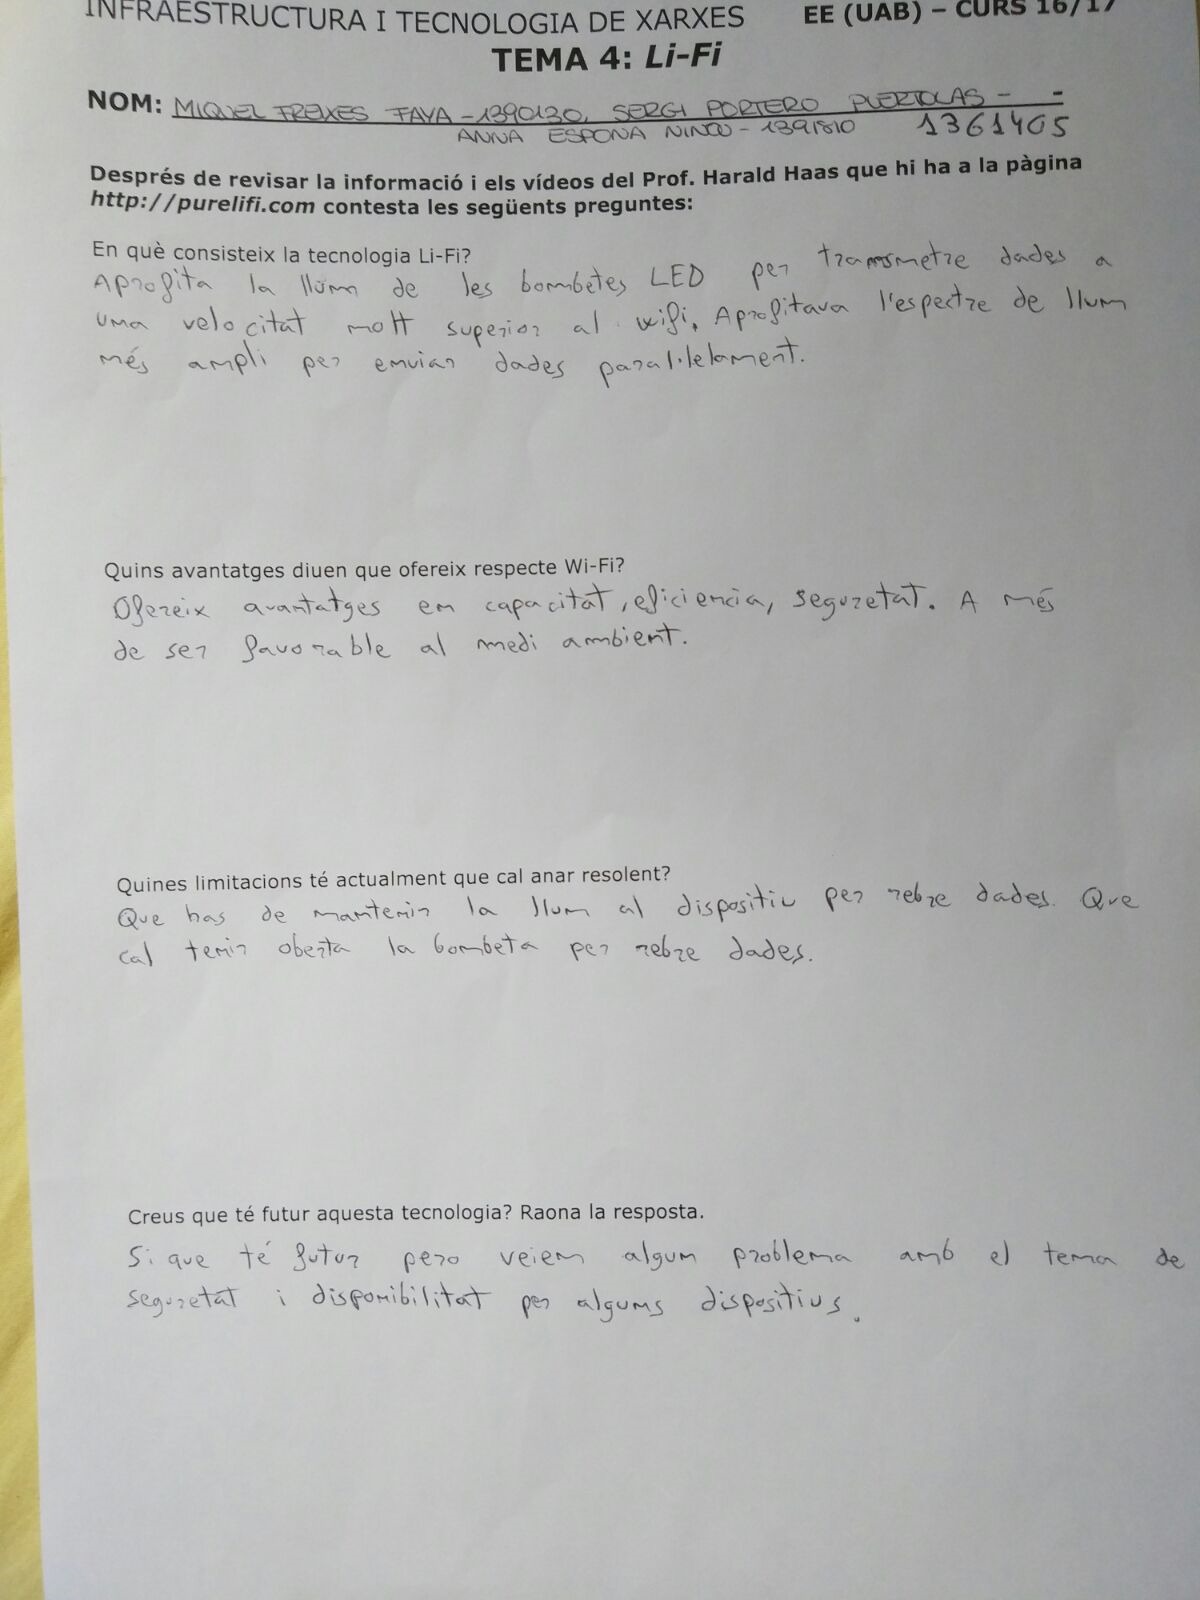 INFRAESTRUCTURA I TECNOLOGIA DE XARXES EE (UAB) – CURS 16/17
TEMA 4: Li-Fi
NOM: MIQUEL FREIXES FAYA - 1390130, SERGI PORTERO PUERTOLAS - -
ANNA ESPONA NINOU - 1391810 1361405
Després de revisar la informació i els vídeos del Prof. Harald Haas que hi ha a la pàgina
http://purelifi.com contesta les següents preguntes:
En què consisteix la tecnologia Li-Fi?
Aprofita la llum de les bombetes LED per transmetre dades a
una velocitat molt superior al wifi. Aprofitava l'espectre de llum
més ampli per enviar dades paral·lelament.
Quins avantatges diuen que ofereix respecte Wi-Fi?
Ofereix avantatges en capacitat, eficiencia, seguretat. A més
de ser favorable al medi ambient.
Quines limitacions té actualment que cal anar resolent?
Que has de mantenir la llum al dispositiu per rebre dades. Que
cal tenir oberta la bombeta per rebre dades.
Creus que té futur aquesta tecnologia? Raona la resposta.
Si que té futur pero veiem algun problema amb el tema de
seguretat i disponibilitat per alguns dispositius.